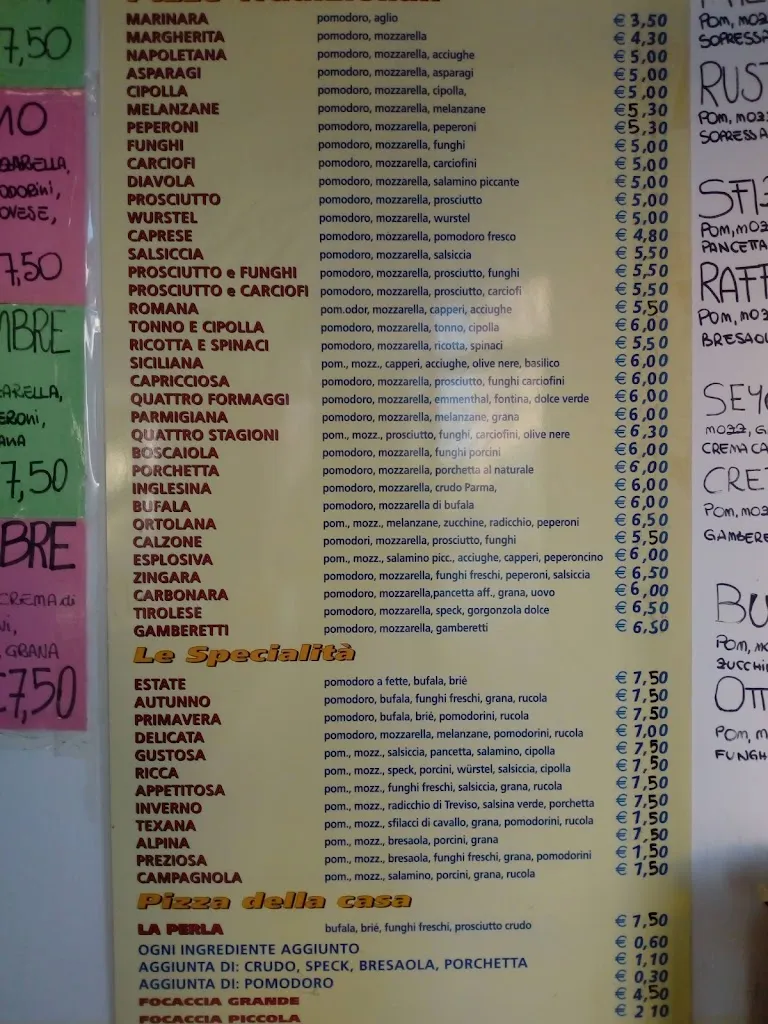 7,50
MO
7,50
7,50
GRANA
7,50
Pizze Tradizionali
MARINARA pomodoro, aglio € 3,50
MARGHERITA pomodoro, mozzarella € 4,30
NAPOLETANA pomodoro, mozzarella, acciughe € 5,00
ASPARAGI pomodoro, mozzarella, asparagi € 5,00
CIPOLLA pomodoro, mozzarella, cipolla, € 5,00
MELANZANE pomodoro, mozzarella, melanzane € 5,30
PEPERONI pomodoro, mozzarella, peperoni € 5,30
FUNGHI pomodoro, mozzarella, funghi € 5,00
CARCIOFI pomodoro, mozzarella, carciofini € 5,00
DIAVOLA pomodoro, mozzarella, salamino piccante € 5,00
PROSCIUTTO pomodoro, mozzarella, prosciutto € 5,00
WURSTEL pomodoro, mozzarella, wurstel € 5,00
CAPRESE pomodoro, mozzarella, pomodoro fresco € 4,80
SALSICCIA pomodoro, mozzarella, salsiccia € 5,50
PROSCIUTTO e FUNGHI pomodoro, mozzarella, prosciutto, funghi € 5,50
PROSCIUTTO e CARCIOFI pomodoro, mozzarella, prosciutto, carciofi € 5,50
ROMANA pom.odor, mozzarella, capperi, acciughe € 5,50
TONNO E CIPOLLA pomodoro, mozzarella, tonno, cipolla € 6,00
RICOTTA E SPINACI pomodoro, mozzarella, ricotta, spinaci € 5,50
SICILIANA pom., mozz., capperi, acciughe, olive nere, basilico € 6,00
CAPRICCIOSA pomodoro, mozzarella, prosciutto, funghi carciofini € 6,00
QUATTRO FORMAGGI pomodoro, mozzarella, emmenthal, fontina, dolce verde € 6,00
PARMIGIANA pomodoro, mozzarella, melanzane, grana € 6,00
QUATTRO STAGIONI pom., mozz., prosciutto, funghi, carciofini, olive nere € 6,30
BOSCAIOLA pomodoro, mozzarella, funghi porcini € 6,00
PORCHETTA pomodoro, mozzarella, porchetta al naturale € 6,00
INGLESINA pomodoro, mozzarella, crudo Parma, € 6,00
BUFALA pomodoro, mozzarella di bufala € 6,00
ORTOLANA pom., mozz., melanzane, zucchine, radicchio, peperoni € 6,50
CALZONE pomodori, mozzarella, prosciutto, funghi € 5,50
ESPLOSIVA pom., mozz., salamino picc., acciughe, capperi, peperoncino € 6,00
ZINGARA pomodoro, mozzarella, funghi freschi, peperoni, salsiccia € 6,50
CARBONARA pomodoro, mozzarella,pancetta aff., grana, uovo € 6,00
TIROLESE pomodoro, mozzarella, speck, gorgonzola dolce € 6,50
GAMBERETTI pomodoro, mozzarella, gamberetti € 6,50
Le Specialità
ESTATE pomodoro a fette, bufala, brié € 7,50
AUTUNNO pomodoro, bufala, funghi freschi, grana, rucola € 7,50
PRIMAVERA pomodoro, bufala, brié, pomodorini, rucola € 7,50
DELICATA pomodoro, mozzarella, melanzane, pomodorini, rucola € 7,00
GUSTOSA pom., mozz., salsiccia, pancetta, salamino, cipolla € 7,50
RICCA pom., mozz., speck, porcini, würstel, salsiccia, cipolla € 7,50
APPETITOSA pom., mozz., funghi freschi, salsiccia, grana, rucola € 7,50
INVERNO pom., mozz., radicchio di Treviso, salsina verde, porchetta € 7,50
TEXANA pom., mozz., sfilacci di cavallo, grana, pomodorini, rucola € 7,50
ALPINA pom., mozz., bresaola, porcini, grana € 7,50
PREZIOSA pom., mozz., bresaola, funghi freschi, grana, pomodorini € 1,50
CAMPAGNOLA pom., mozz., salamino, porcini, grana, rucola € 7,50
Pizza della casa
LA PERLA bufala, brié, funghi freschi, prosciutto crudo € 7,50
OGNI INGREDIENTE AGGIUNTO € 0,60
AGGIUNTA DI: CRUDO, SPECK, BRESAOLA, PORCHETTA € 1,10
AGGIUNTA DI: POMODORO € 0,30
FOCACCIA GRANDE € 4,50
FOCACCIA PICCOLA € 2 10
POM, MOZ
SOPRESSA
RUST
POM, MOZZ
SOPRESSA
POM, MOZ
PANCETTA
RAFF
POM, MOZ
BRESAOL
MOZZ, G
CREMA CA
CRE
POM, MOZ
GAMBERE
BU
POM, MO
ZUCCHI
OTT
POM, M
FUNGH